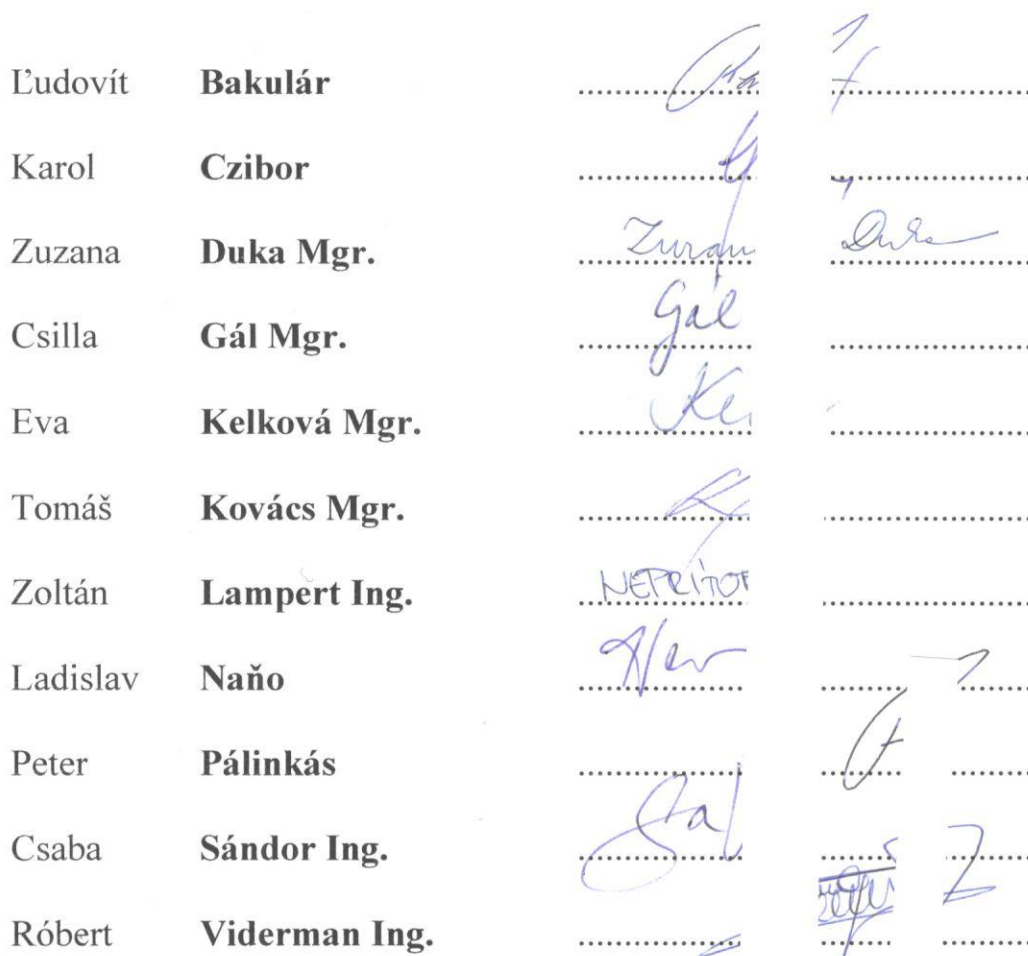 Ľudovít Bakulár
Karol Czibor
Zuzana Duka Mgr. Duka
Csilla Gál Mgr. Gál
Eva Kelková Mgr.
Tomáš Kovács Mgr.
Zoltán Lampert Ing. NEPRÍTO
Ladislav Naňo
Peter Pálinkás
Csaba Sándor Ing.
Róbert Viderman Ing.